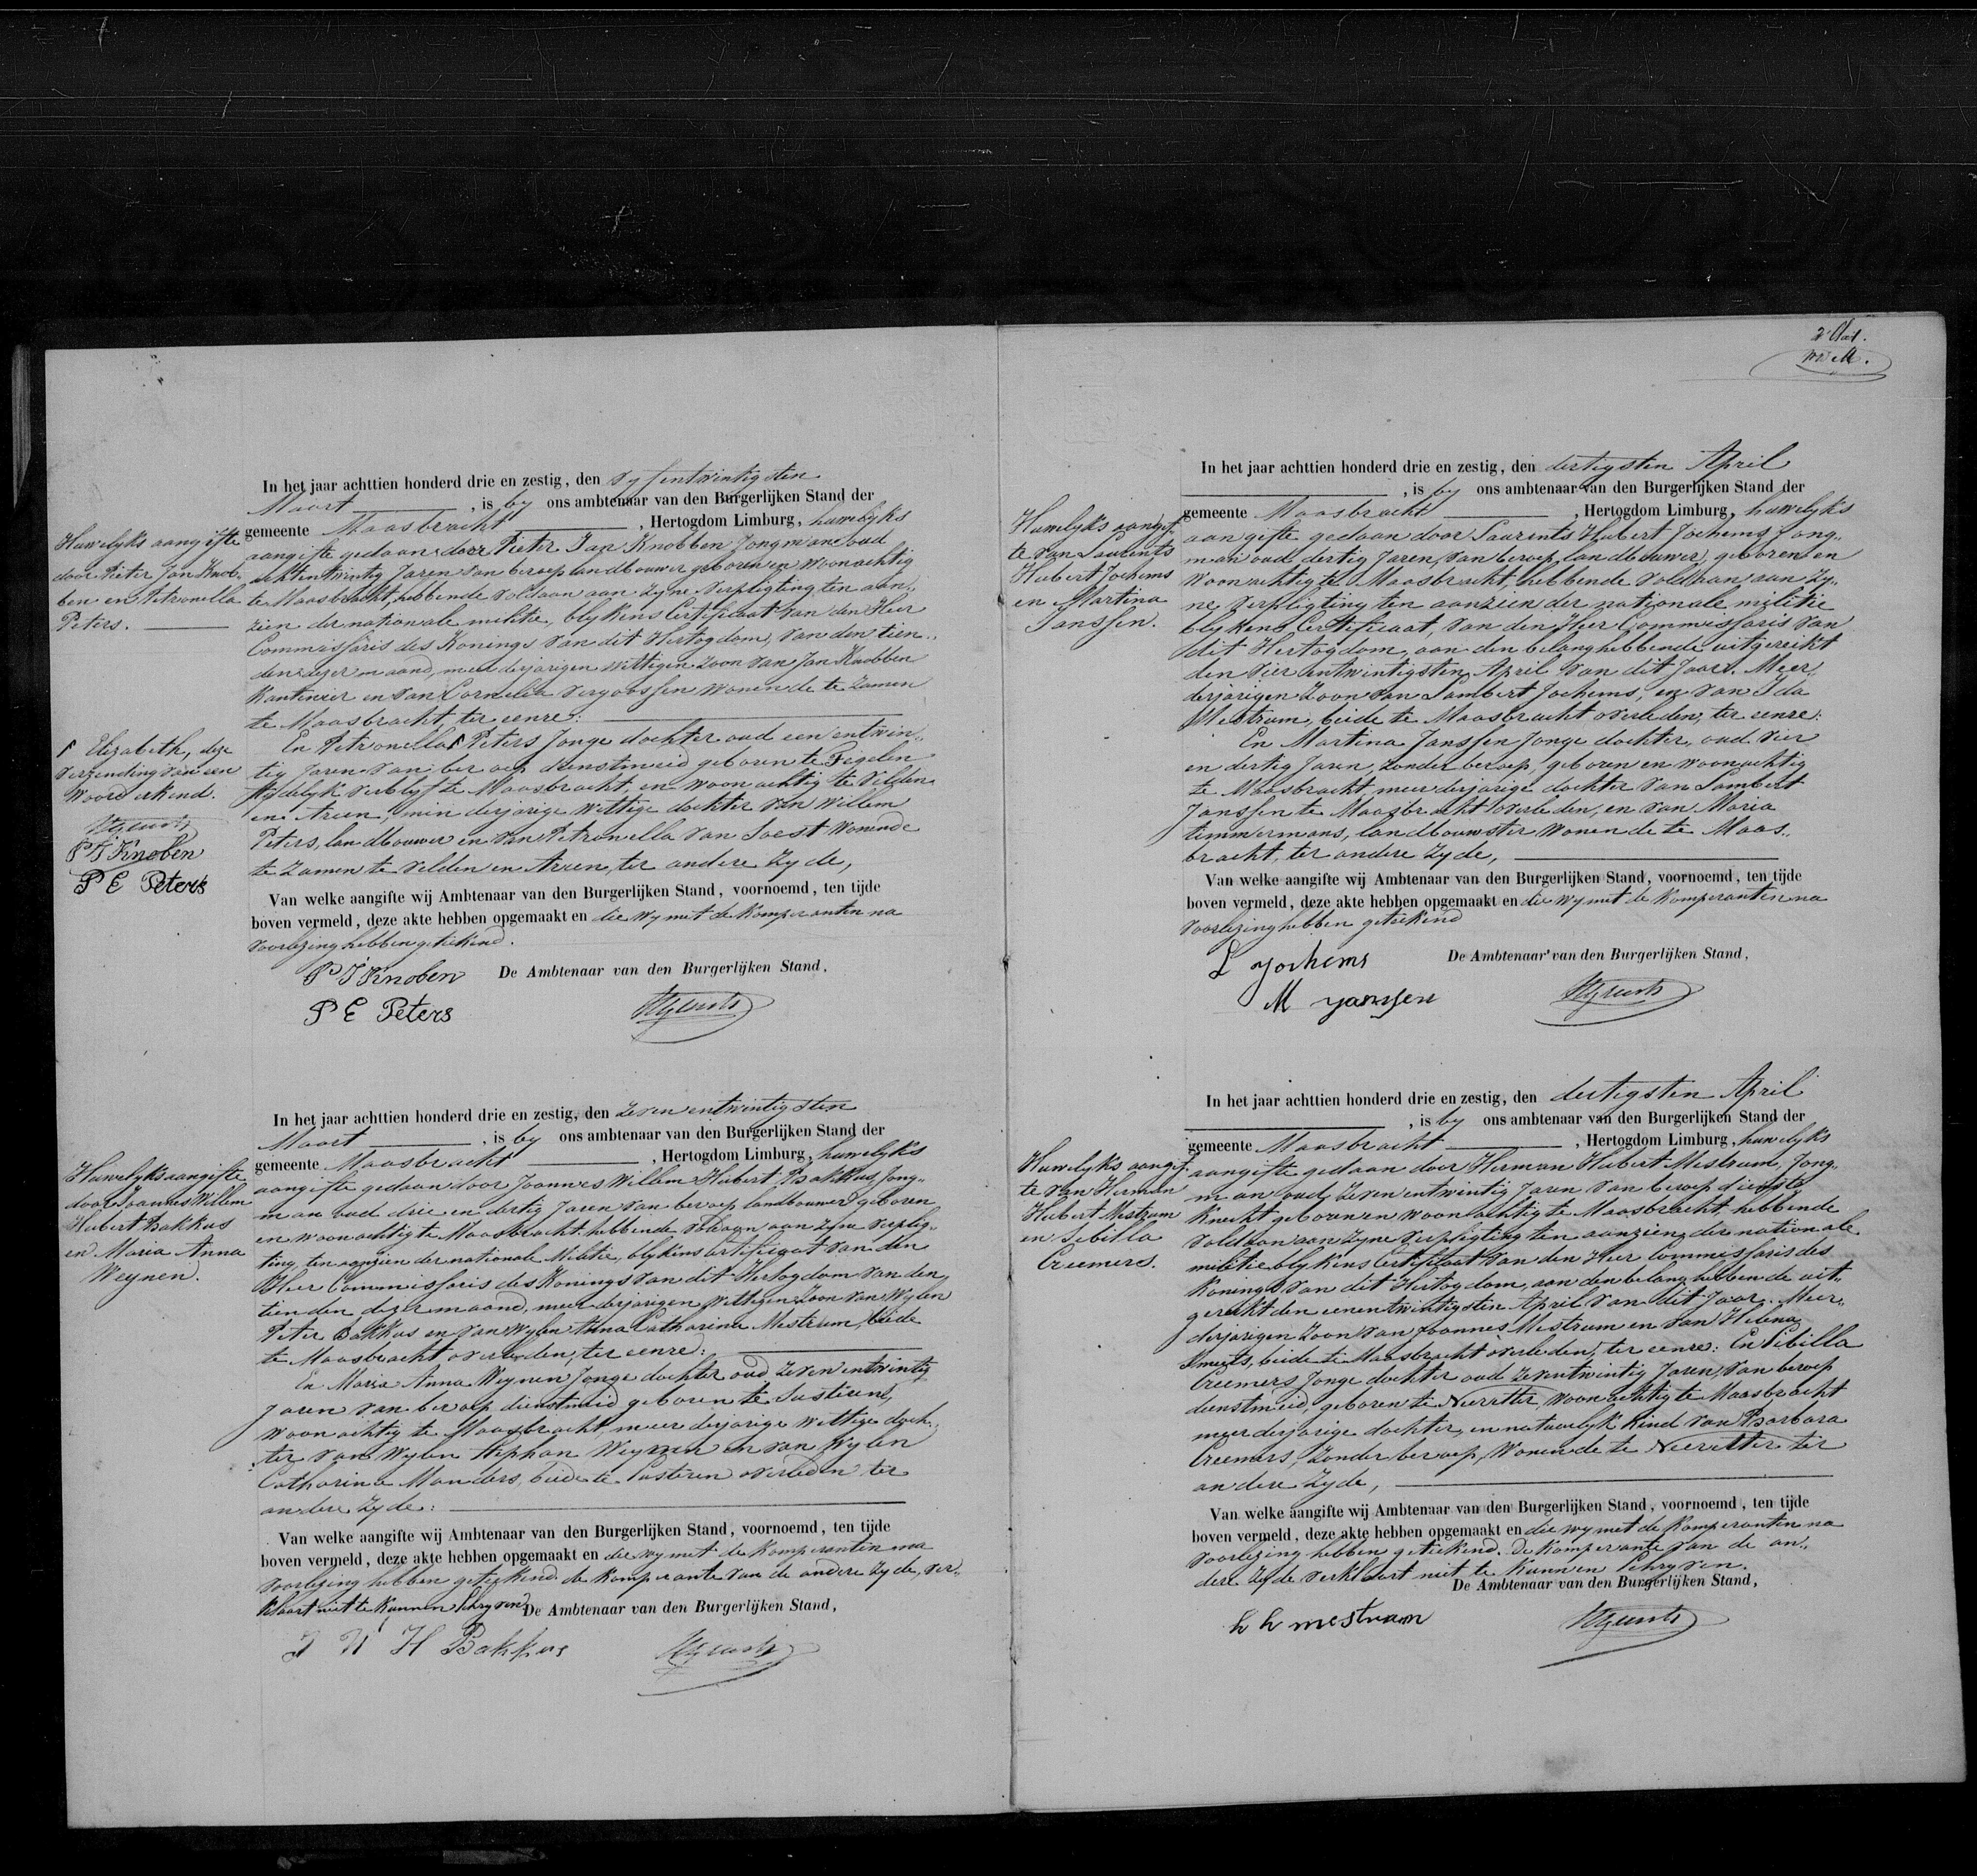 Huwelyks aangifte
door Pieter Jan Knob-
ben en Petronella
Peters.
Elizabeth, deze
verzending van een
woord erkend.
P J Knoben
P E Peters
In het jaar achttien honderd drie en zestig, den vyfentwintigsten
Maart, is by ons ambtenaar van den Burgerlijken Stand der
gemeente Maasbracht, Hertogdom Limburg, huwelyks
aangifte gedaan door Pieter Jan Knobben Jongman oud
achtentwintig Jaren van beroep landbouwer geboren en woonachtig
te Maasbracht, hebbende voldaan aan zyne verpligting ten aan„
zien der nationale militie, blykens Certificaat van den Heer
Commissaris des Konings van dit Hertogdom, van den tien„
den dezer maand, meerderjarigen wittigen zoon van Jan Knobben
en van Cornelia Vergoossen wonende te zamen
te Maasbracht, ter eenre:
En Petronella Peters Jonge dochter oud een entwin„
tig Jaren van beroep dienstmeid geboren te Tegelen
tijdelyk verblyf te Maasbracht, en woonachtig te Velden
en Arcen, minderjarige wettige dochter van Willem
Peters, landbouwer en van Petronella van Soest wonende
te zamen te Velden en Arcen, ter andere zyde,
Van welke aangifte wij Ambtenaar van den Burgerlijken Stand, voornoemd, ten tijde
boven vermeld, deze akte hebben opgemaakt en die wy met de Komparanten na
voorlezing hebben geteekend.
P J Knoben De Ambtenaar van den Burgerlijken Stand,
P E Peters
Huwelyks aangifte
door Joannes Willem
Hubert Bakkus
en Maria Anna
Weynen.
In het jaar achttien honderd drie en zestig, den zevenentwintigsten
Maart, is by ons ambtenaar van den Burgerlijken Stand der
gemeente Maasbracht, Hertogdom Limburg, huwelyks
aangifte gedaan door Joannes Willem Hubert Bakkus, Jong„
man oud drie en dertig Jaren van beroep landbouwer geboren
en woonachtig te Maasbracht hebbende voldaan aan zyne verplig„
ting, ten aanzien der nationale Militie, blykens Certificaat van den
Heer Commissaris des Konings van dit Hertogdom van den
tienden dezer maand, meerderjarigen wettigen zoon van Wylen
Peter Bakkus en van Wylen Anna Catharina Mestrum, beide
te Maasbracht overleden, ter eenre:
En Maria Anna Weynen Jonge dochter oud zevenentwintig
Jaren van beroep dienstmeid geboren te Susteren,
woonachtig te Maasbracht, meerderjarige wettige doch„
ter van Wylen Stephan Weynen en van Wylen
Catharina Manders, beide te Susteren overleden ter
andere zyde:
Van welke aangifte wij Ambtenaar van den Burgerlijken Stand, voornoemd, ten tijde
boven vermeld, deze akte hebben opgemaakt en die wy met de Komparanten na
voorlezing hebben geteekend. de Komparante van de andere zyde, ver„
klaart niet te kunnen schryven. De Ambtenaar van den Burgerlijken Stand,
J W H Bakkus
Huwelyks aangif„
te van Laurents
Hubert Jochems
en Martina
Janssen.
In het jaar achttien honderd drie en zestig, den dertigsten April
, is by ons ambtenaar van den Burgerlijken Stand der
gemeente Maasbracht, Hertogdom Limburg, huwelyks
aangifte gedaan door Laurents Hubert Jochems Jong„
man oud dertig Jaren, van beroep landbouwer, geboren en
woonachtig te Maasbracht, hebbende voldaan aan zy„
ne, verpligting ten aanzien der nationale militie
blykens Certificaat, van den Heer Commissaris van
dit Hertogdom, aan den belanghebbende uitgereikt
den vierentwintigsten April van dit Jaar. Meer„
derjarigen zoon van Lambert Jochems, en van Ida
Mestrum, beide te Maasbracht overleden, ter eenre:
En Martina Janssen Jonge dochter, oud vier
en dertig Jaren, zonder beroep, geboren en woonachtig
te Maasbracht, meerderjarige dochter van Lambert
Janssen te Maasbracht overleden, en van Maria
Timmermans, landbouwster wonende te Maas„
bracht, ter andere zyde,
Van welke aangifte wij Ambtenaar van den Burgerlijken Stand, voornoemd, ten tijde
boven vermeld, deze akte hebben opgemaakt en die wy met de Komparanten na
voorlezing hebben geteekend
L Jochems De Ambtenaar van den Burgerlijken Stand,
M Janssen
Huwelyks aangif„
te van Herman
Hubert Mestrum
en Sibilla
Creemers.
In het jaar achttien honderd drie en zestig, den dertigsten April
, is by ons ambtenaar van den Burgerlijken Stand der
gemeente Maasbracht, Hertogdom Limburg, huwelyks
aangifte gedaan door Herman Hubert Mestrum, Jong„
man oud, zevenentwintig Jaren van beroep dienst
Knecht geboren en woonachtig te Maasbracht, hebbende
voldaan aan zyne verpligting ten aanzien der nationale
militie blykens Certificaat van den Heer Commissaris des
Konings van dit Hertogdom, aan den belanghebbende uit„
gereikt den eenentwintigsten April van dit Jaar. Meer„
derjarigen zoon van Joannes Mestrum en van Helena
Smeets, beide te Maasbracht overleden, ter eenre: En Sibilla
Creemers Jonge dochter oud zevenentwintig Jaren, van beroep
dienstmeid, geboren te Neeritter, woonachtig te Maasbracht
meerderjarige dochter, en natuurlyk kind van Barbara
Creemers, zonder beroep, Wonende te Neeritter ter
andere zyde,
Van welke aangifte wij Ambtenaar van den Burgerlijken Stand, voornoemd, ten tijde
boven vermeld, deze akte hebben opgemaakt en die wy met de Komparanten na
voorlezing hebben geteekend. de Komparante van de an„
dere zyde verklaart niet te kunnen schryven.
De Ambtenaar van den Burgerlijken Stand,
h h mestrum